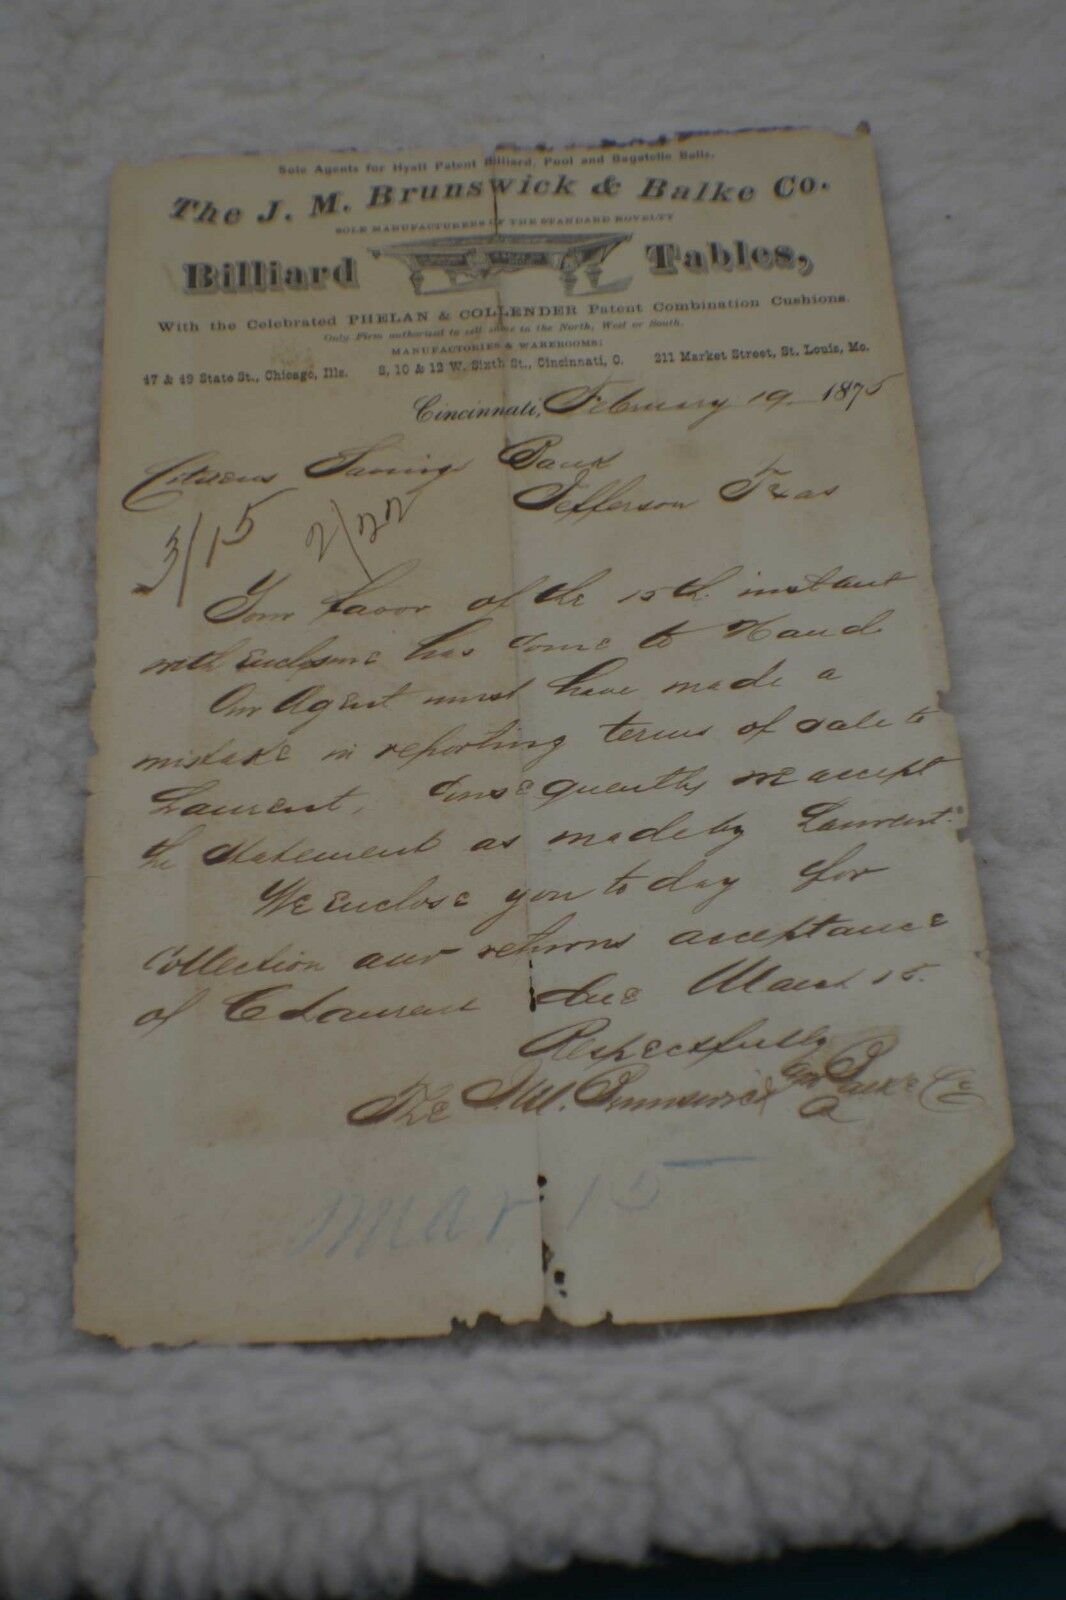 Sole Agents for Hyatt Patent Billiard, Pool and Bagatelle Balls.
The J. M. Brunswick & Balke Co.
SOLE MANUFACTURERS OF THE STANDARD NOVELTY
Billiard Tables,
With the Celebrated PHELAN & COLLENDER Patent Combination Cushions.
Only Firm authorized to sell same in the North, West or South.
MANUFACTORIES & WAREROOMS:
47 & 49 State St., Chicago, Ills. 8, 10 & 12 W. Sixth St., Cincinnati, O. 211 Market Street, St. Louis, Mo.
Cincinnati, February 19 1875
Citizens Savings Bank
Jefferson Texas
3/15 2/22
Your favor of the 15th instant
with enclosure has come to Hand
Our Agent must have made a
mistake in reporting terms of sale to
Laurent, Consequently we accept
the statement as made by Laurent.
We enclose you to day for
Collection and returns acceptance
of C Laurent due March 15.
Respectfully
The J. M. Brunswick & Balke Co
Mar 15